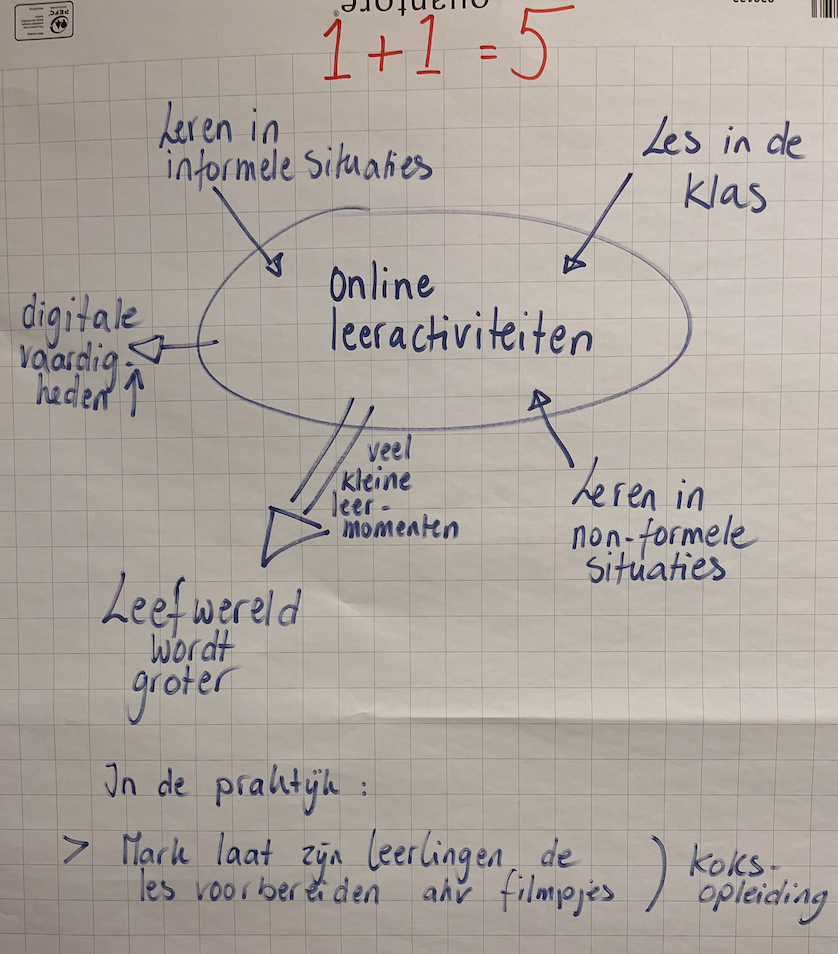 quantore
1 + 1 = 5
Leren in
informele situaties
Les in de
klas
Online
leeractiviteiten
digitale
vaardig-
heden ↑
veel
kleine
leer-
momenten
Leren in
non-formele
situaties
Leefwereld
wordt
groter
In de praktijk :
> Mark laat zijn leerlingen de
les voorbereiden ahv filmpjes
) koks-
opleiding
PEFC